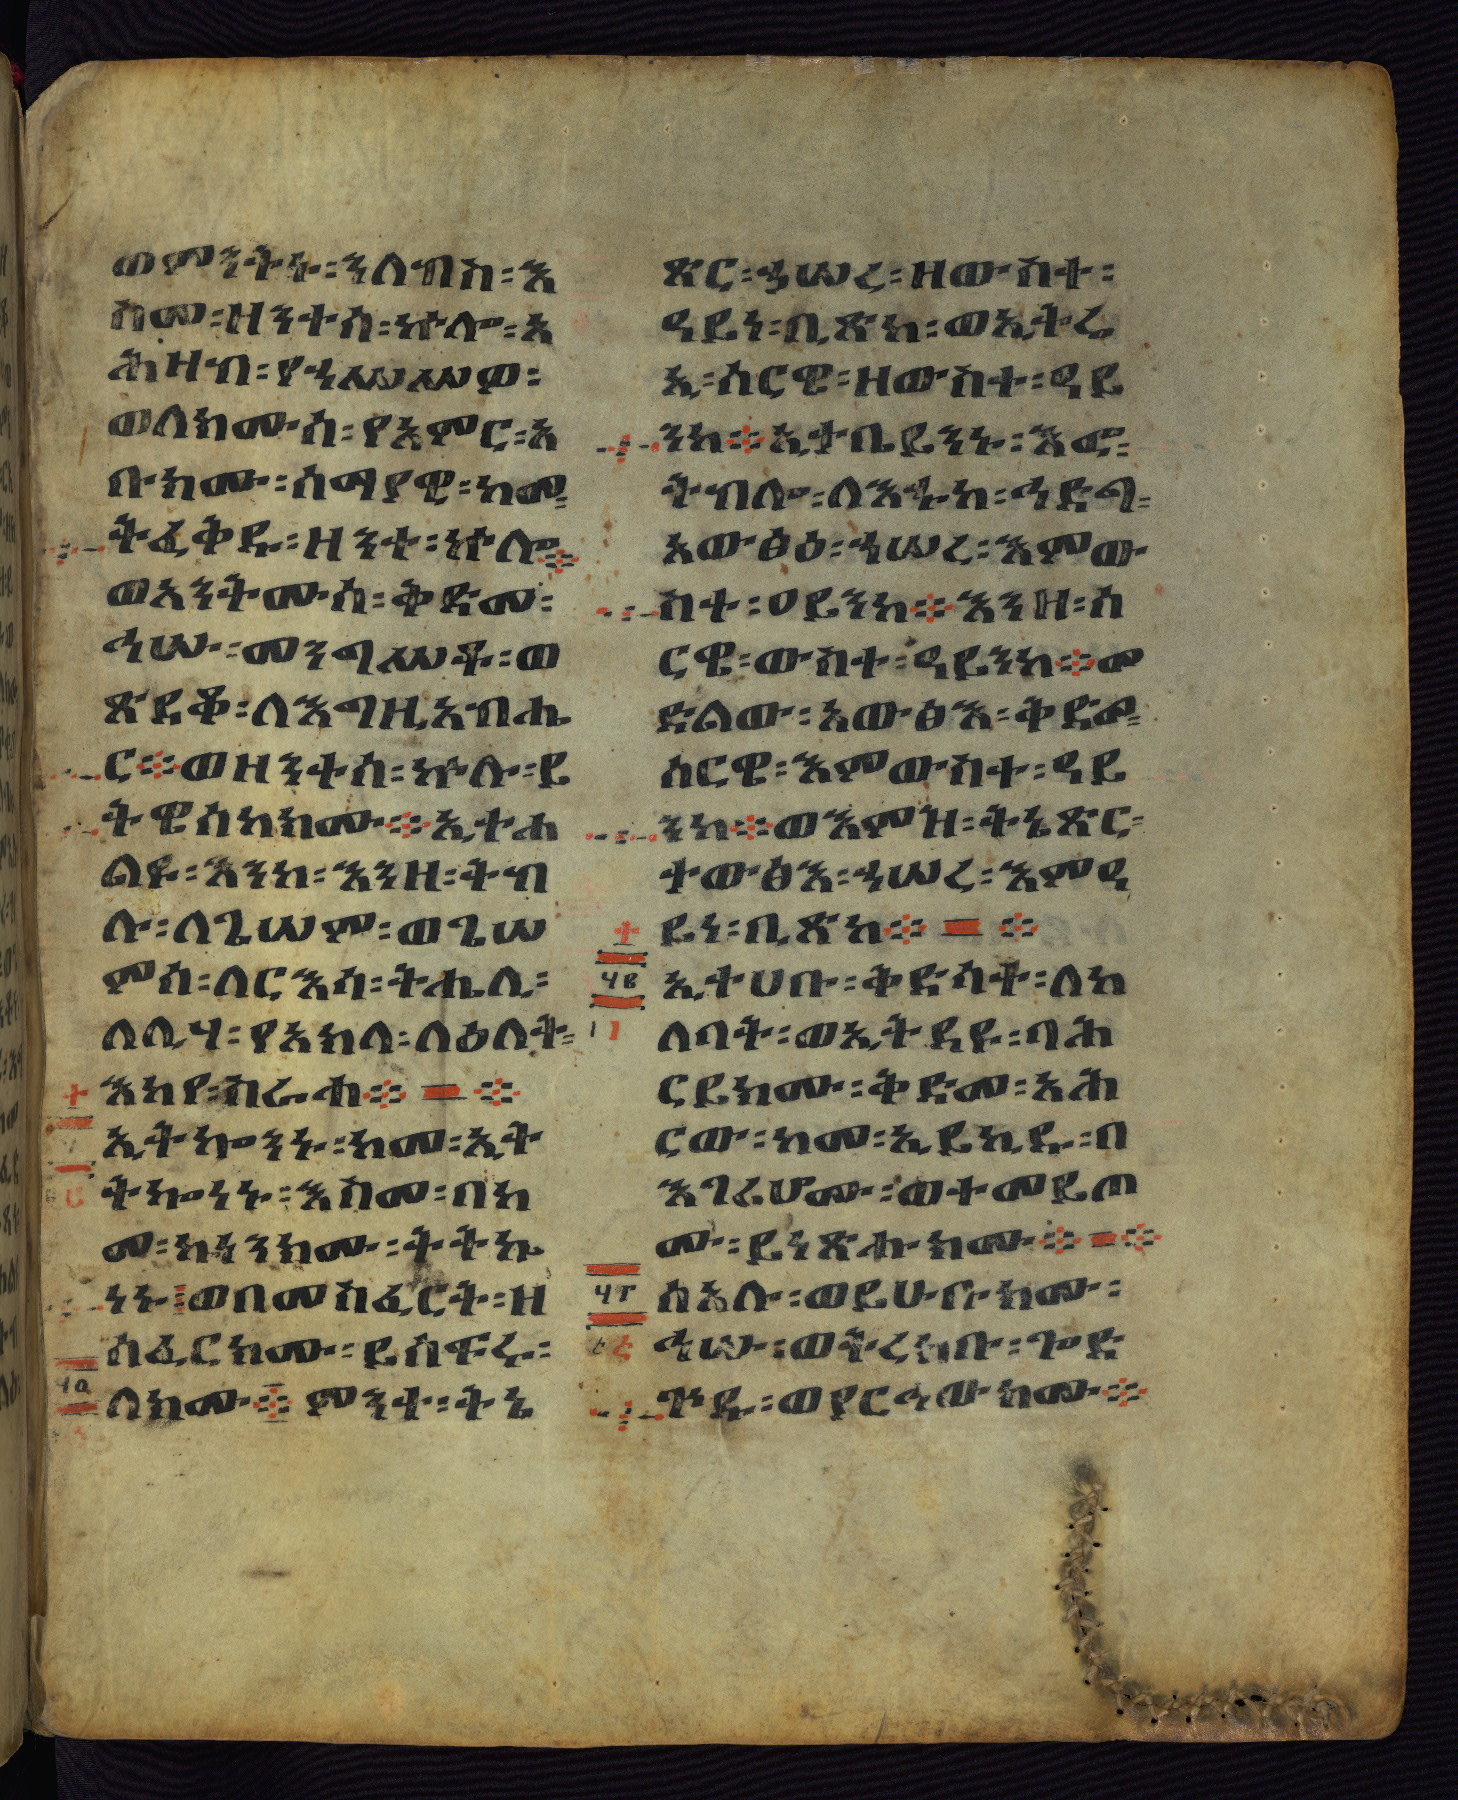 ወምንትኑ፡ንለብስ፡እ
ስመ፡ዘንተሰ፡ኵሎ፡አ
ሕዛብ፡የኃሥሥዎ፡
ወለክሙሰ፡የአምር፡አ
ቡክሙ፡ሰማያዊ፡ከመ፡
ትፈቅዱ፡ዘንተ፡ኵሎ፨
ወአንትሙሰ፡ቅድመ፡
ኅሡ፡መንግሥቶ፡ወ
ጽድቆ፡ለእግዚአብሔ
ር፨ወዘንተሰ፡ኵሉ፡ይ
ትዌስከክሙ፨ኢተሐ
ልዩ፡እንከ፡እንዘ፡ትብ
ሉ፡ለጌሠም፡ወጌሠ
ምሰ፡ለርእሳ፡ትሔሊ፡
ለሊሃ፡የአክላ፡ለዕለት፡
እከያ፡ሰራሕ፨ ፨
ኢትኰንኑ፡ከመ፡ኢት
ትኰነኑ፡እስመ፡በከ
መ፡ኰነንክሙ፡ትትኴ
ነኑ፡ወበመስፈርት፡ዘ
ሰፈርክሙ፡ይሰፍሩ፡
፶፩ ለክሙ፨ ምንተ፡ትኔ
ጽር፡ኃሠረ፡ዘውስተ፡
ዓይነ፡ቢጽከ፡ወኢትሬ
ኢ፡ሰርዌ፡ዘውስተ፡ዓይ
ንከ፨ኢተቤይንኑ፡እፎ፡
ትብሎ፡ለእኁከ፡ኅድግ፡
አውፅዕ፡ኃሠረ፡እምው
ስተ፡ዐይንከ፨እንዘ፡ሰ
ርዌ፡ውስተ፡ዓይንከ፨መ
ድልው፡አውፅእ፡ቅድመ፡
ሰርዌ፡እምውስተ፡ዓይ
ንከ፨ወእምዝ፡ትኔጽር፡
ተውፅእ፡ኃሠረ፡እምዓ
ይነ፡ቢጽከ፨ ፨
፶፪ ኢተሀቡ፡ቅድሳተ፡ለከ
ለባት፡ወኢትደዩ፡ባሕ
ርይክሙ፡ቅድመ፡አሕ
ርው፡ከመ፡ኢይኪዱ፡በ
እገሪሆሙ፡ወተመይጦ
ሙ፡ይነጽሑክሙ፨ ፨
፶፫ ሰአሉ፡ወይሁቡክሙ፡
ኅሡ፡ወትረክቡ፡ጐድ
ጕዱ፡ወያርኅውክሙ፨